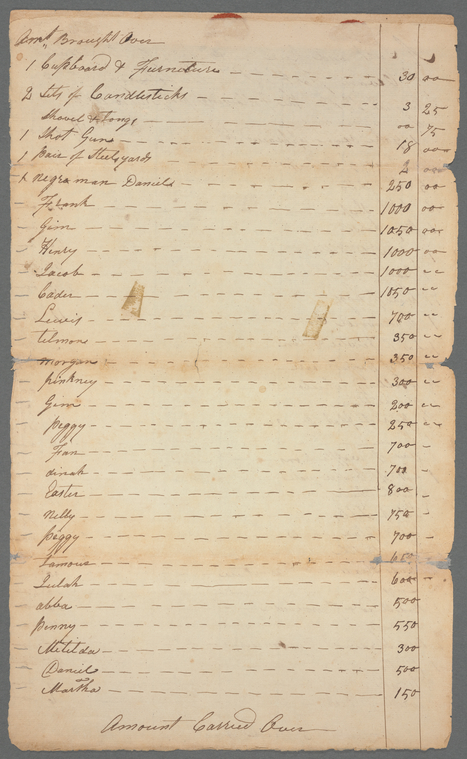 Amt Brought Over
1 Cupboard & Furniture 30 00
2 Sets of Candlesticks 3 25
Shovel & tongs 00 75
1 Shot Gun 18 00
1 Pair of Steelyards 2 00
1 Negro man Daniel 250 00
Frank 1000 00
Gim 1050 00
Henry 1000 00
Jacob 1000 "
Cader 1050 "
Lewis 700 "
tilmon 350 "
morgan 350 "
pinkney 300 "
Gim 200 "
Peggy 250 "
Fan 700 -
dinah 700 -
Easter 800 -
Nelly 750 -
Peggy 700 -
650 -
600 -
abba 500
Penny 550
Metilda 300
Daniel 500
Martha 150
Amount Carried Over